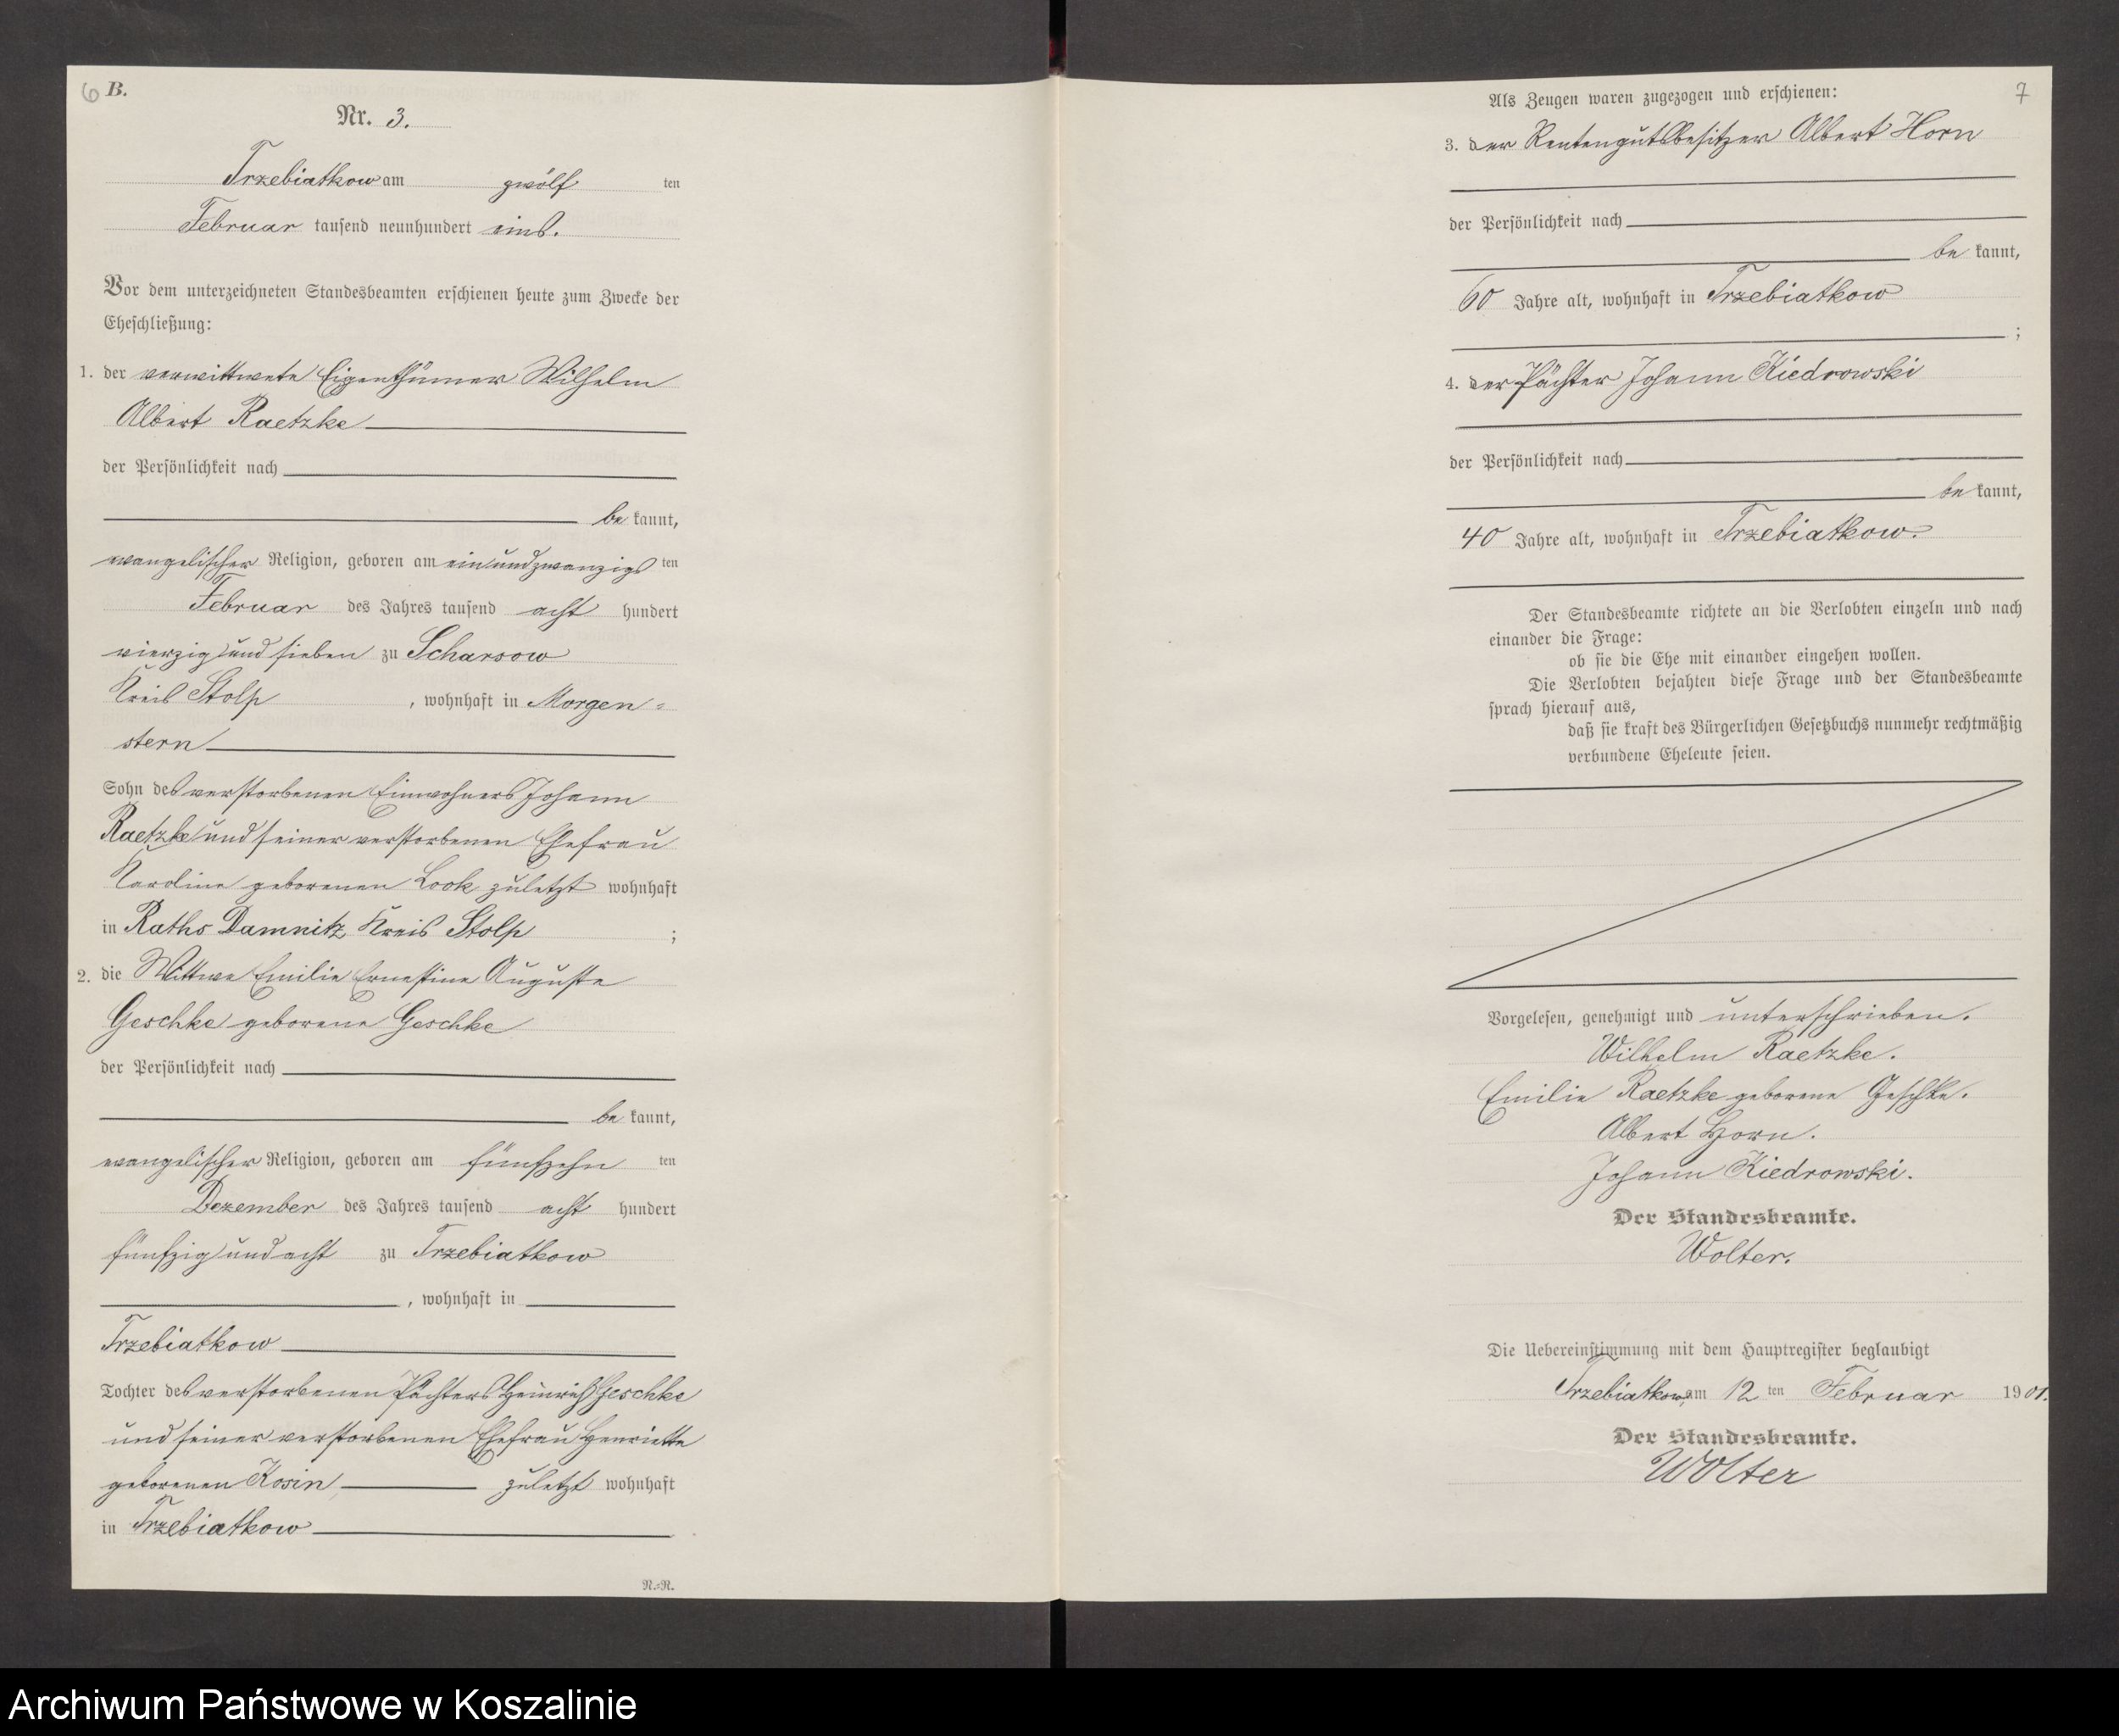 6 B.
Nr. 3.
Trzebiatkow am zwölf ten
Februar tausend neunhundert eins.
Vor dem unterzeichneten Standesbeamten erschienen heute zum Zwecke der
Eheschließung:
1. der verwittwete Eigenthümer Wilhelm
Albert Raetzke
der Persönlichkeit nach
be kannt,
evangelischer Religion, geboren am einundzwanzigs ten
Februar des Jahres tausend acht hundert
vierzig und sieben zu Scharsow
Kreis Stolp , wohnhaft in Morgen=
stern
Sohn des verstorbenen Einwohners Johann
Raetzke und seiner verstorbenen Ehefrau
Karoline geborenen Look zuletzt wohnhaft
in Raths Damnitz Kreis Stolp ;
2. die Wittwe Emilie Ernestine Auguste
Geschke geborene Geschke
der Persönlichkeit nach
be kannt,
evangelischer Religion, geboren am fünfzehn ten
Dezember des Jahres tausend acht hundert
fünfzig und acht zu Trzebiatkow
, wohnhaft in
Trzebiatkow
Tochter des verstorbenen Pächters Heinrich Geschke
und seiner verstorbenen Ehefrau Henriette
geborenen Kosin zuletzt wohnhaft
in Trzebiatkow
N.=N.
7
Als Zeugen waren zugezogen und erschienen:
3. der Rentengutsbesitzer Albert Horn
der Persönlichkeit nach
be kannt,
60 Jahre alt, wohnhaft in Trzebiatkow
;
4. der Pächter Johann Kiedrowski
der Persönlichkeit nach
be kannt,
40 Jahre alt, wohnhaft in Trzebiatkow.
Der Standesbeamte richtete an die Verlobten einzeln und nach
einander die Frage:
ob sie die Ehe mit einander eingehen wollen.
Die Verlobten bejahten diese Frage und der Standesbeamte
sprach hierauf aus,
daß sie kraft des Bürgerlichen Gesetzbuchs nunmehr rechtmäßig
verbundene Eheleute seien.
Vorgelesen, genehmigt und unterschrieben.
Wilhelm Raetzke.
Emilie Raetzke geborene Geschke.
Albert Horn.
Johann Kiedrowski.
Der Standesbeamte.
Wolter.
Die Uebereinstimmung mit dem Hauptregister beglaubigt
Trzebiatkow, am 12 ten Februar 1901.
Der Standesbeamte.
Wolter
Archiwum Państwowe w Koszalinie